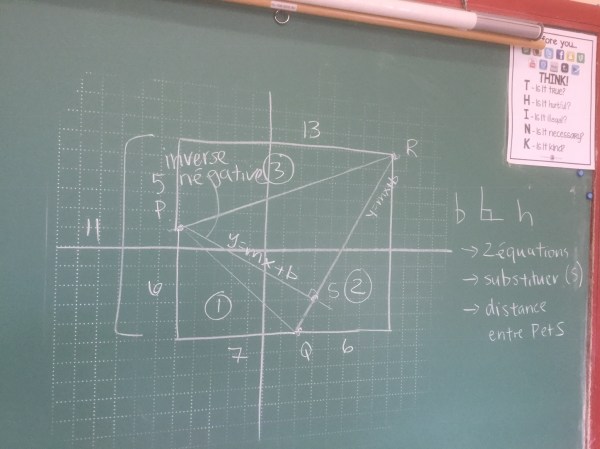 13
R
inverse
négative ③
5
P
y=mx+b
y=mx+b
11
6
①
S ②
7
Q
6
b ⊥ h
→ 2 équations
→ substituer (S)
→ distance
entre P et S
before you...
THINK!
T - is it true?
H - is it hurtful?
I - is it illegal?
N - is it necessary?
K - is it kind?